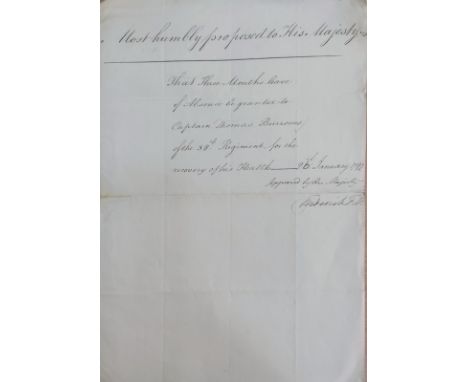 Most humbly proposed to His Majesty
That Three Months leave
of Absence be granted to
Captain Thomas Burrows
of the Regiment for the
recovery of his Health 26th January
Approved by His Majesty
Frederick